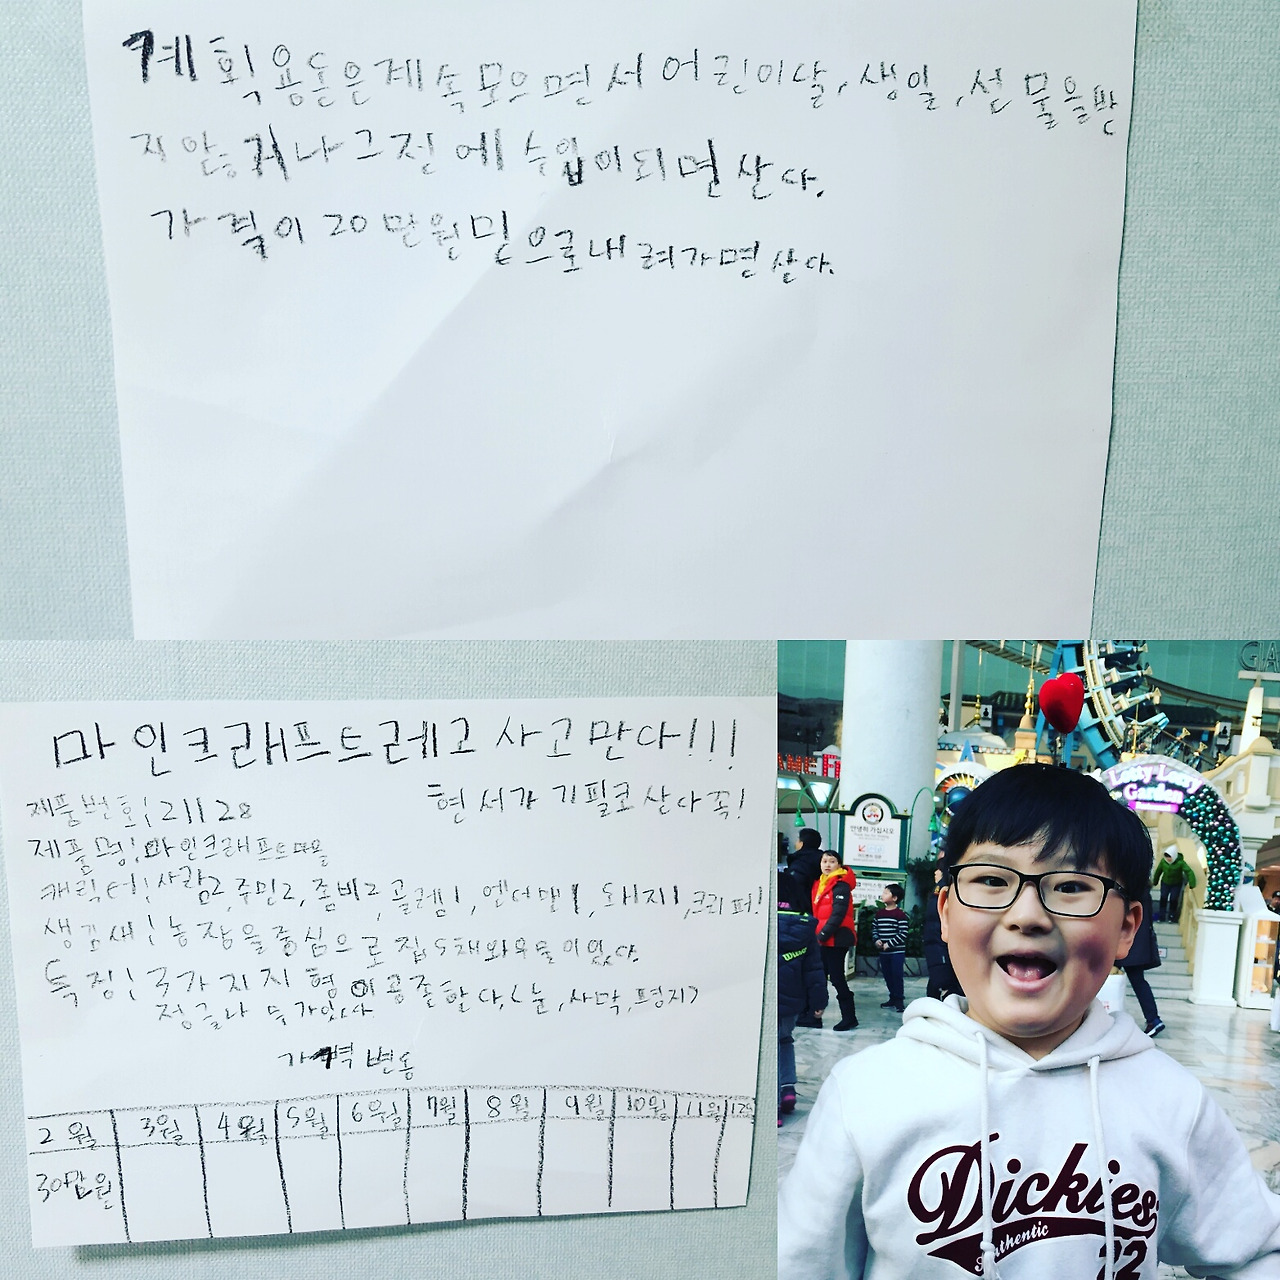 계획 용돈은 계속 모으면서 어린이날, 생일, 선물을 받
지 않거나 그전에 수입이 되면 산다.
가격이 20만원 밑으로 내려가면 산다.
마인크래프트레고 사고만다!!!
현서가 기필코 산다 꼭!
제품번호:21128
제품명:마인크래프트마을
캐릭터:사람2,주민2,좀비2,골렘1,엔더맨1,돼지1,크리퍼1
생김새:농장을 중심으로 집5채와 우물이 있다.
특징:3가지 지형이 공존한다.<눈,사막,평지>
정글나무가있다
가격변동
2월 3월 4월 5월 6월 7월 8월 9월 10월 11월 12
30만원
Lotty Lorry
Garden
안녕히 가십시오
GA
AME
Wilson
Dickies
Authentic
22